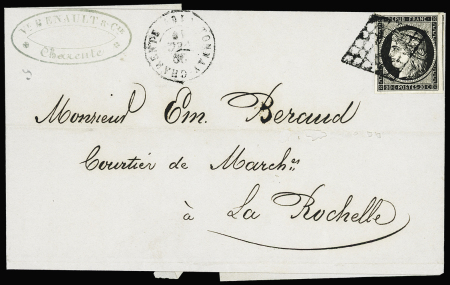 Vve RENAULT & Cie
Charente
TONNAY-CHARENTE
REPUB. FRANC.
20 C POSTES 20 C
Monsieur Em. Beraud
Courtier de March.es
à La Rochelle